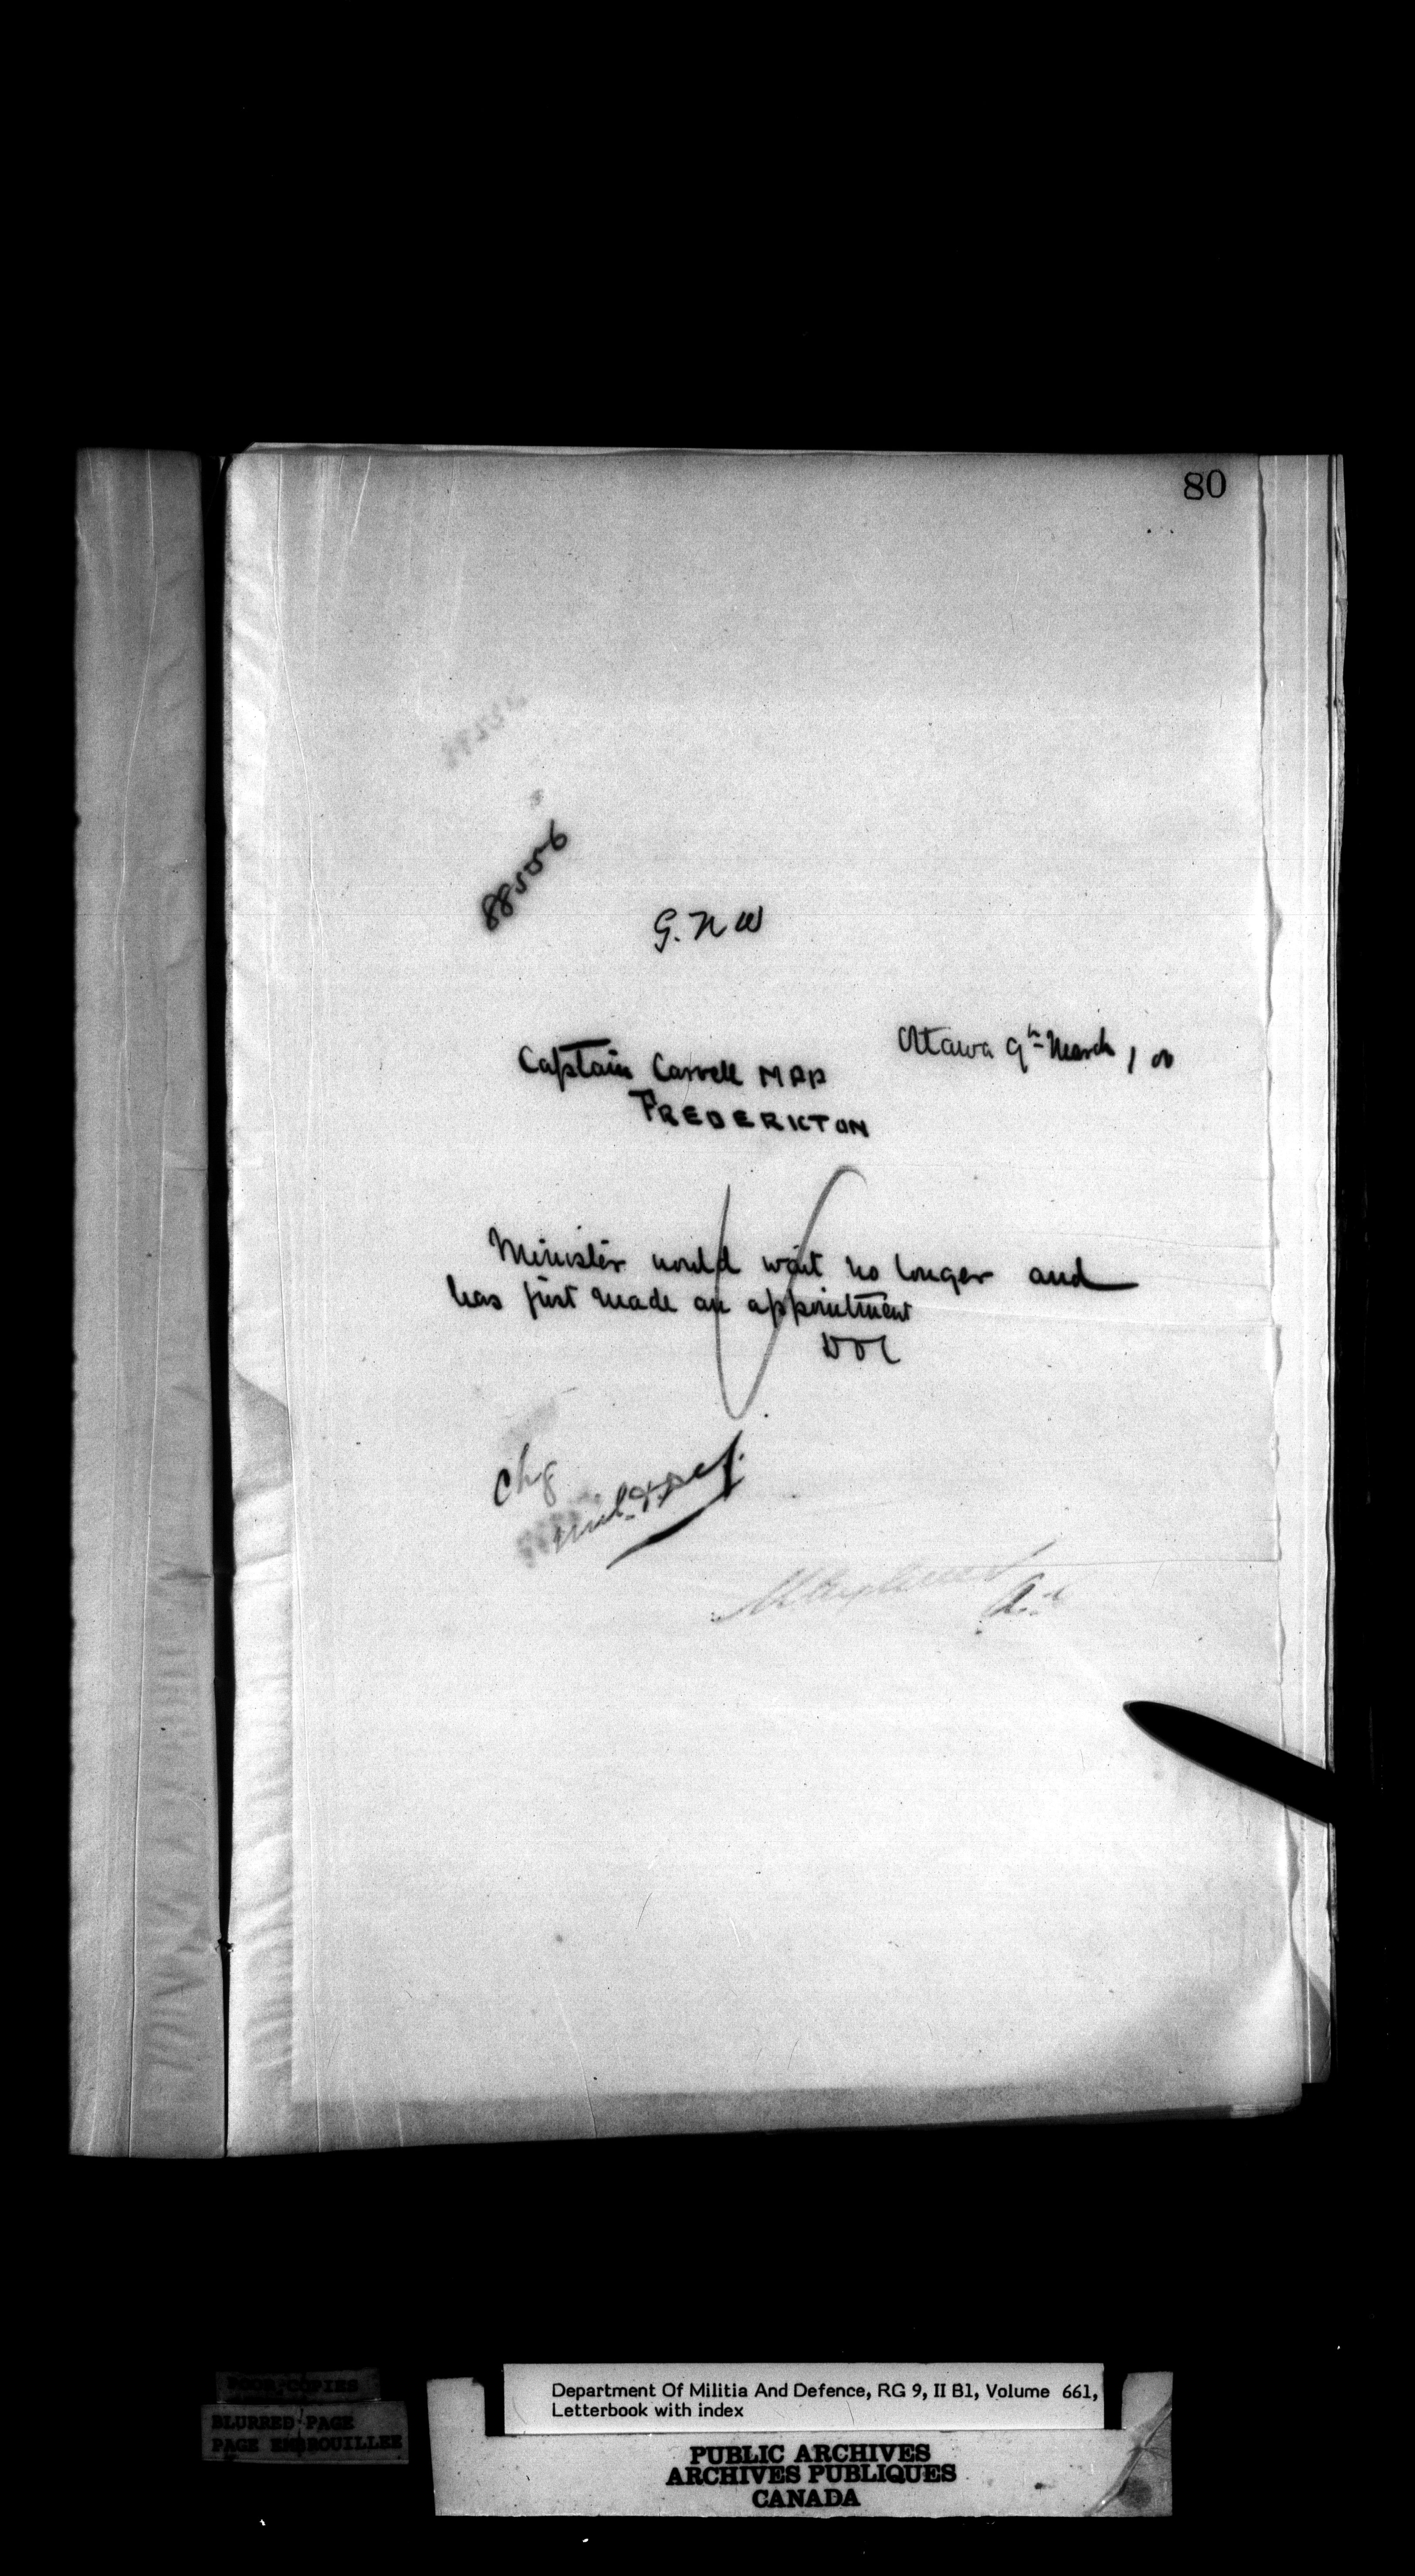 80
88556
G. N W
Ottawa 9th March, 00
Captain Carvell MPP
FREDERICTON
Minister would wait no longer and
has just made an appointment
DOC
Chg
Mil. & Def.
POOR COPIES
BLURRED PAGE
PAGE EMBROUILLEE
Department Of Militia And Defence, RG 9, II B1, Volume 661,
Letterbook with index
PUBLIC ARCHIVES
ARCHIVES PUBLIQUES
CANADA